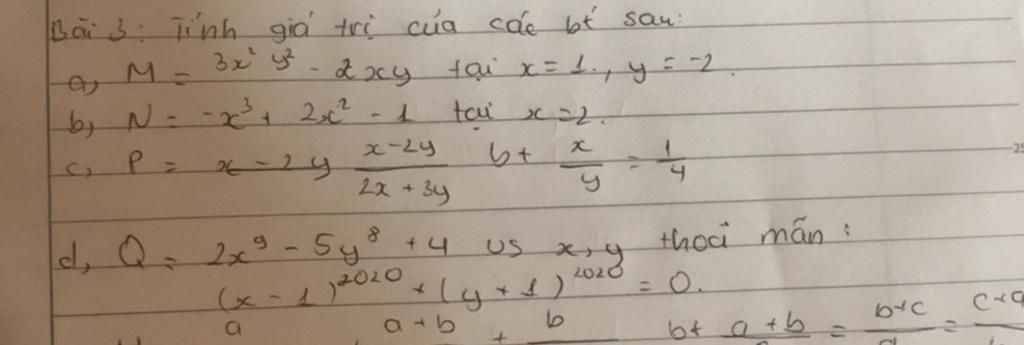 Bài 3: Tính giá trị của các bt sau:
a, M = 3x² y² - 2xy tại x = 1., y = -2.
b, N = -x³ + 2x² - 1 tại x = 2.
c, P = (x - 2y)/(2x + 3y) bt x/y = 1/4
d, Q = 2x⁹ - 5y⁸ + 4 vs x, y thoả mãn:
(x - 1)²⁰²⁰ + (y + 1)²⁰²⁰ = 0.
a a + b + b bt a + b = b + c = c + a